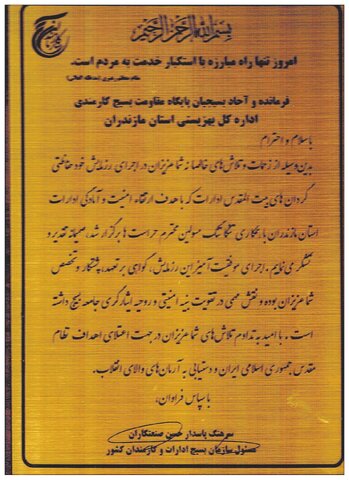 بسم الله الرحمن الرحیم
امروز تنها راه مبارزه با استکبار خدمت به مردم است.
مقام معظم رهبری (مدظله العالی)
فرمانده و آحاد بسیجیان پایگاه مقاومت بسیج کارمندی
اداره کل بهزیستی استان مازندران
با سلام و احترام
بدین وسیله از زحمات و تلاش های خالصانه شما عزیزان در اجرای رزمایش خود حفاظتی
گردان های بیت المقدس ادارات که با هدف ارتقاء امنیت و آمادگی ادارات
استان مازندران با همکاری تنگاتنگ مسولین محترم حراست ها برگزار شد، صمیمانه تقدیر و
تشکر می نمایم. اجرای موفقیت آمیز این رزمایش، گواهی بر تعهد، پشتکار و تخصص
شما عزیزان بوده و نقش مهمی در تقویت بنیه امنیتی و روحیه ایثارگری جامعه بسیج داشته
است. با امید به تداوم تلاش های شما عزیزان در جهت اعتلای اهداف نظام
مقدس جمهوری اسلامی ایران و دستیابی به آرمان های والای انقلاب.
با سپاس فراوان،
سرهنگ پاسدار حسن صنعتکاران
مسئول سازمان بسیج ادارات و کارمندان کشور